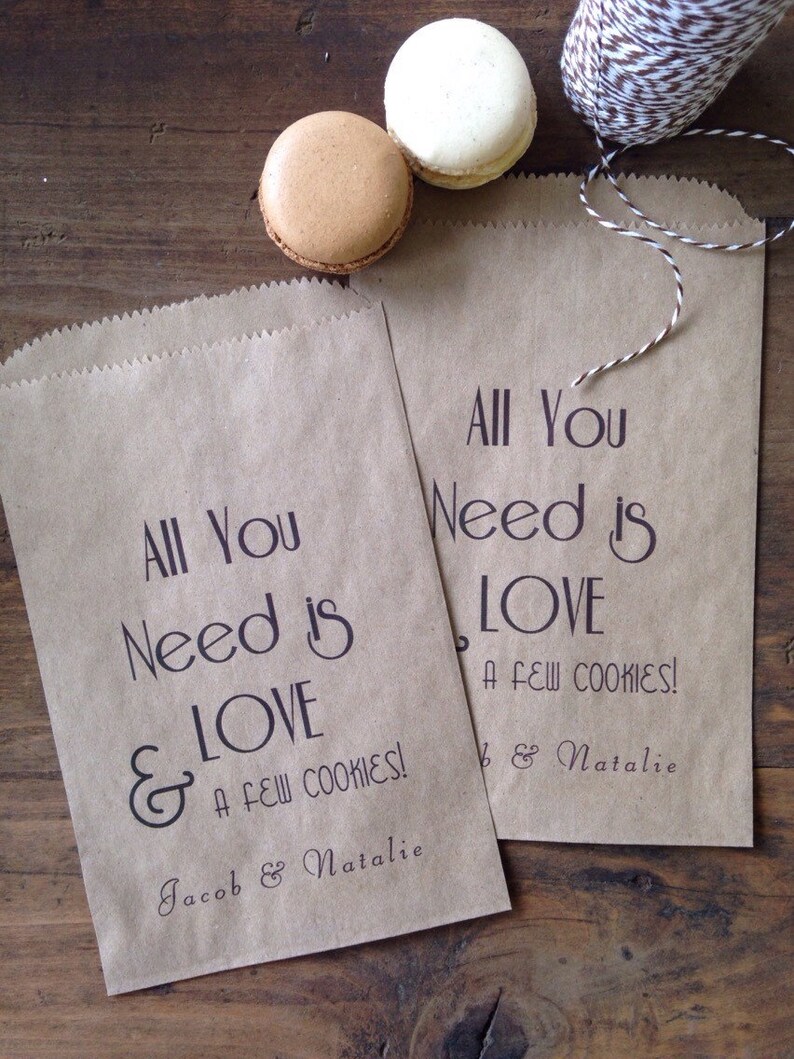 All You
Need is
LOVE
& A FEW COOKIES!
Jacob & Natalie
All You
Need is
LOVE
& A FEW COOKIES!
b & Natalie